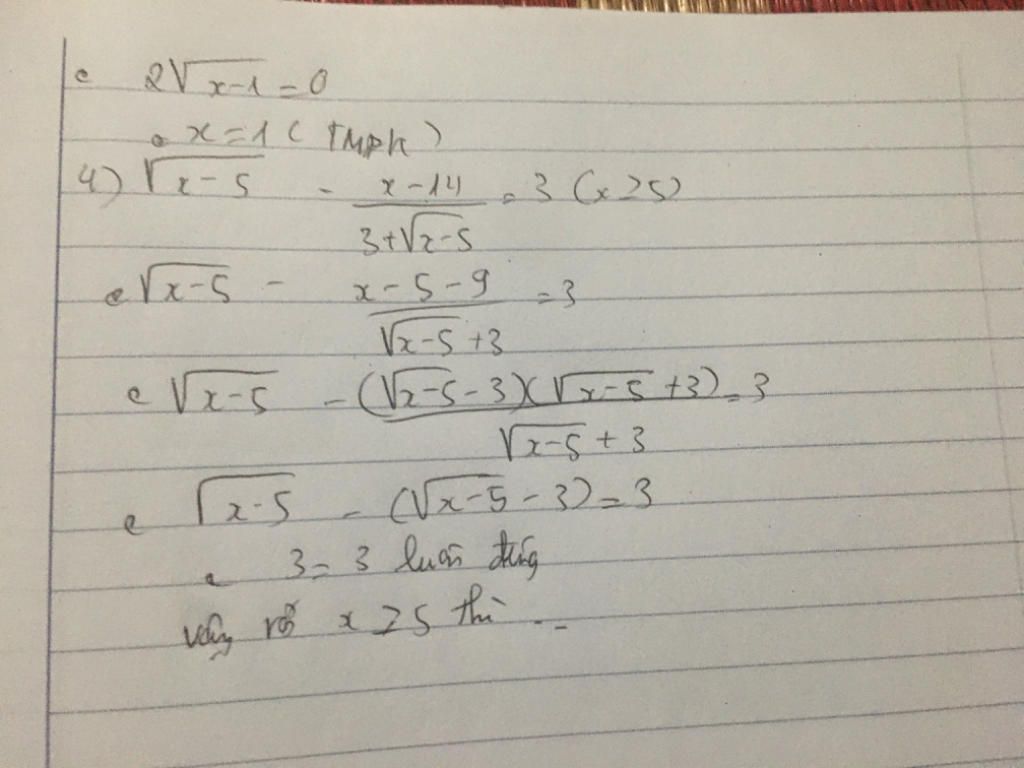 ⇔ 2√(x-1) = 0
⇔ x = 1 (TMĐK)
4) √(x-5) - (x-14)/(3+√(x-5)) = 3 (x ≥ 5)
⇔ √(x-5) - (x-5-9)/(√(x-5)+3) = 3
⇔ √(x-5) - (√(x-5)-3)(√(x-5)+3)/(√(x-5)+3) = 3
⇔ √(x-5) - (√(x-5)-3) = 3
⇔ 3 = 3 luôn đúng
vậy với x ≥ 5 thì ...